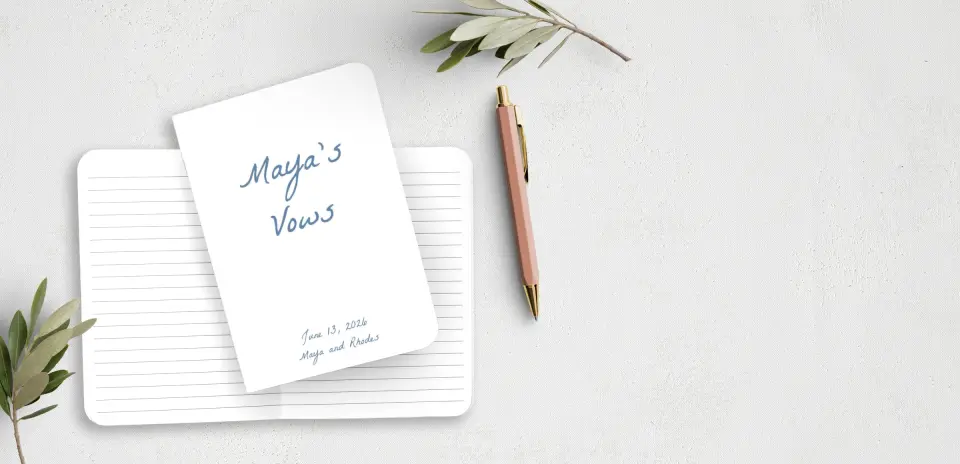 Maya's
Vows
June 13, 2026
Maya and Rhodes